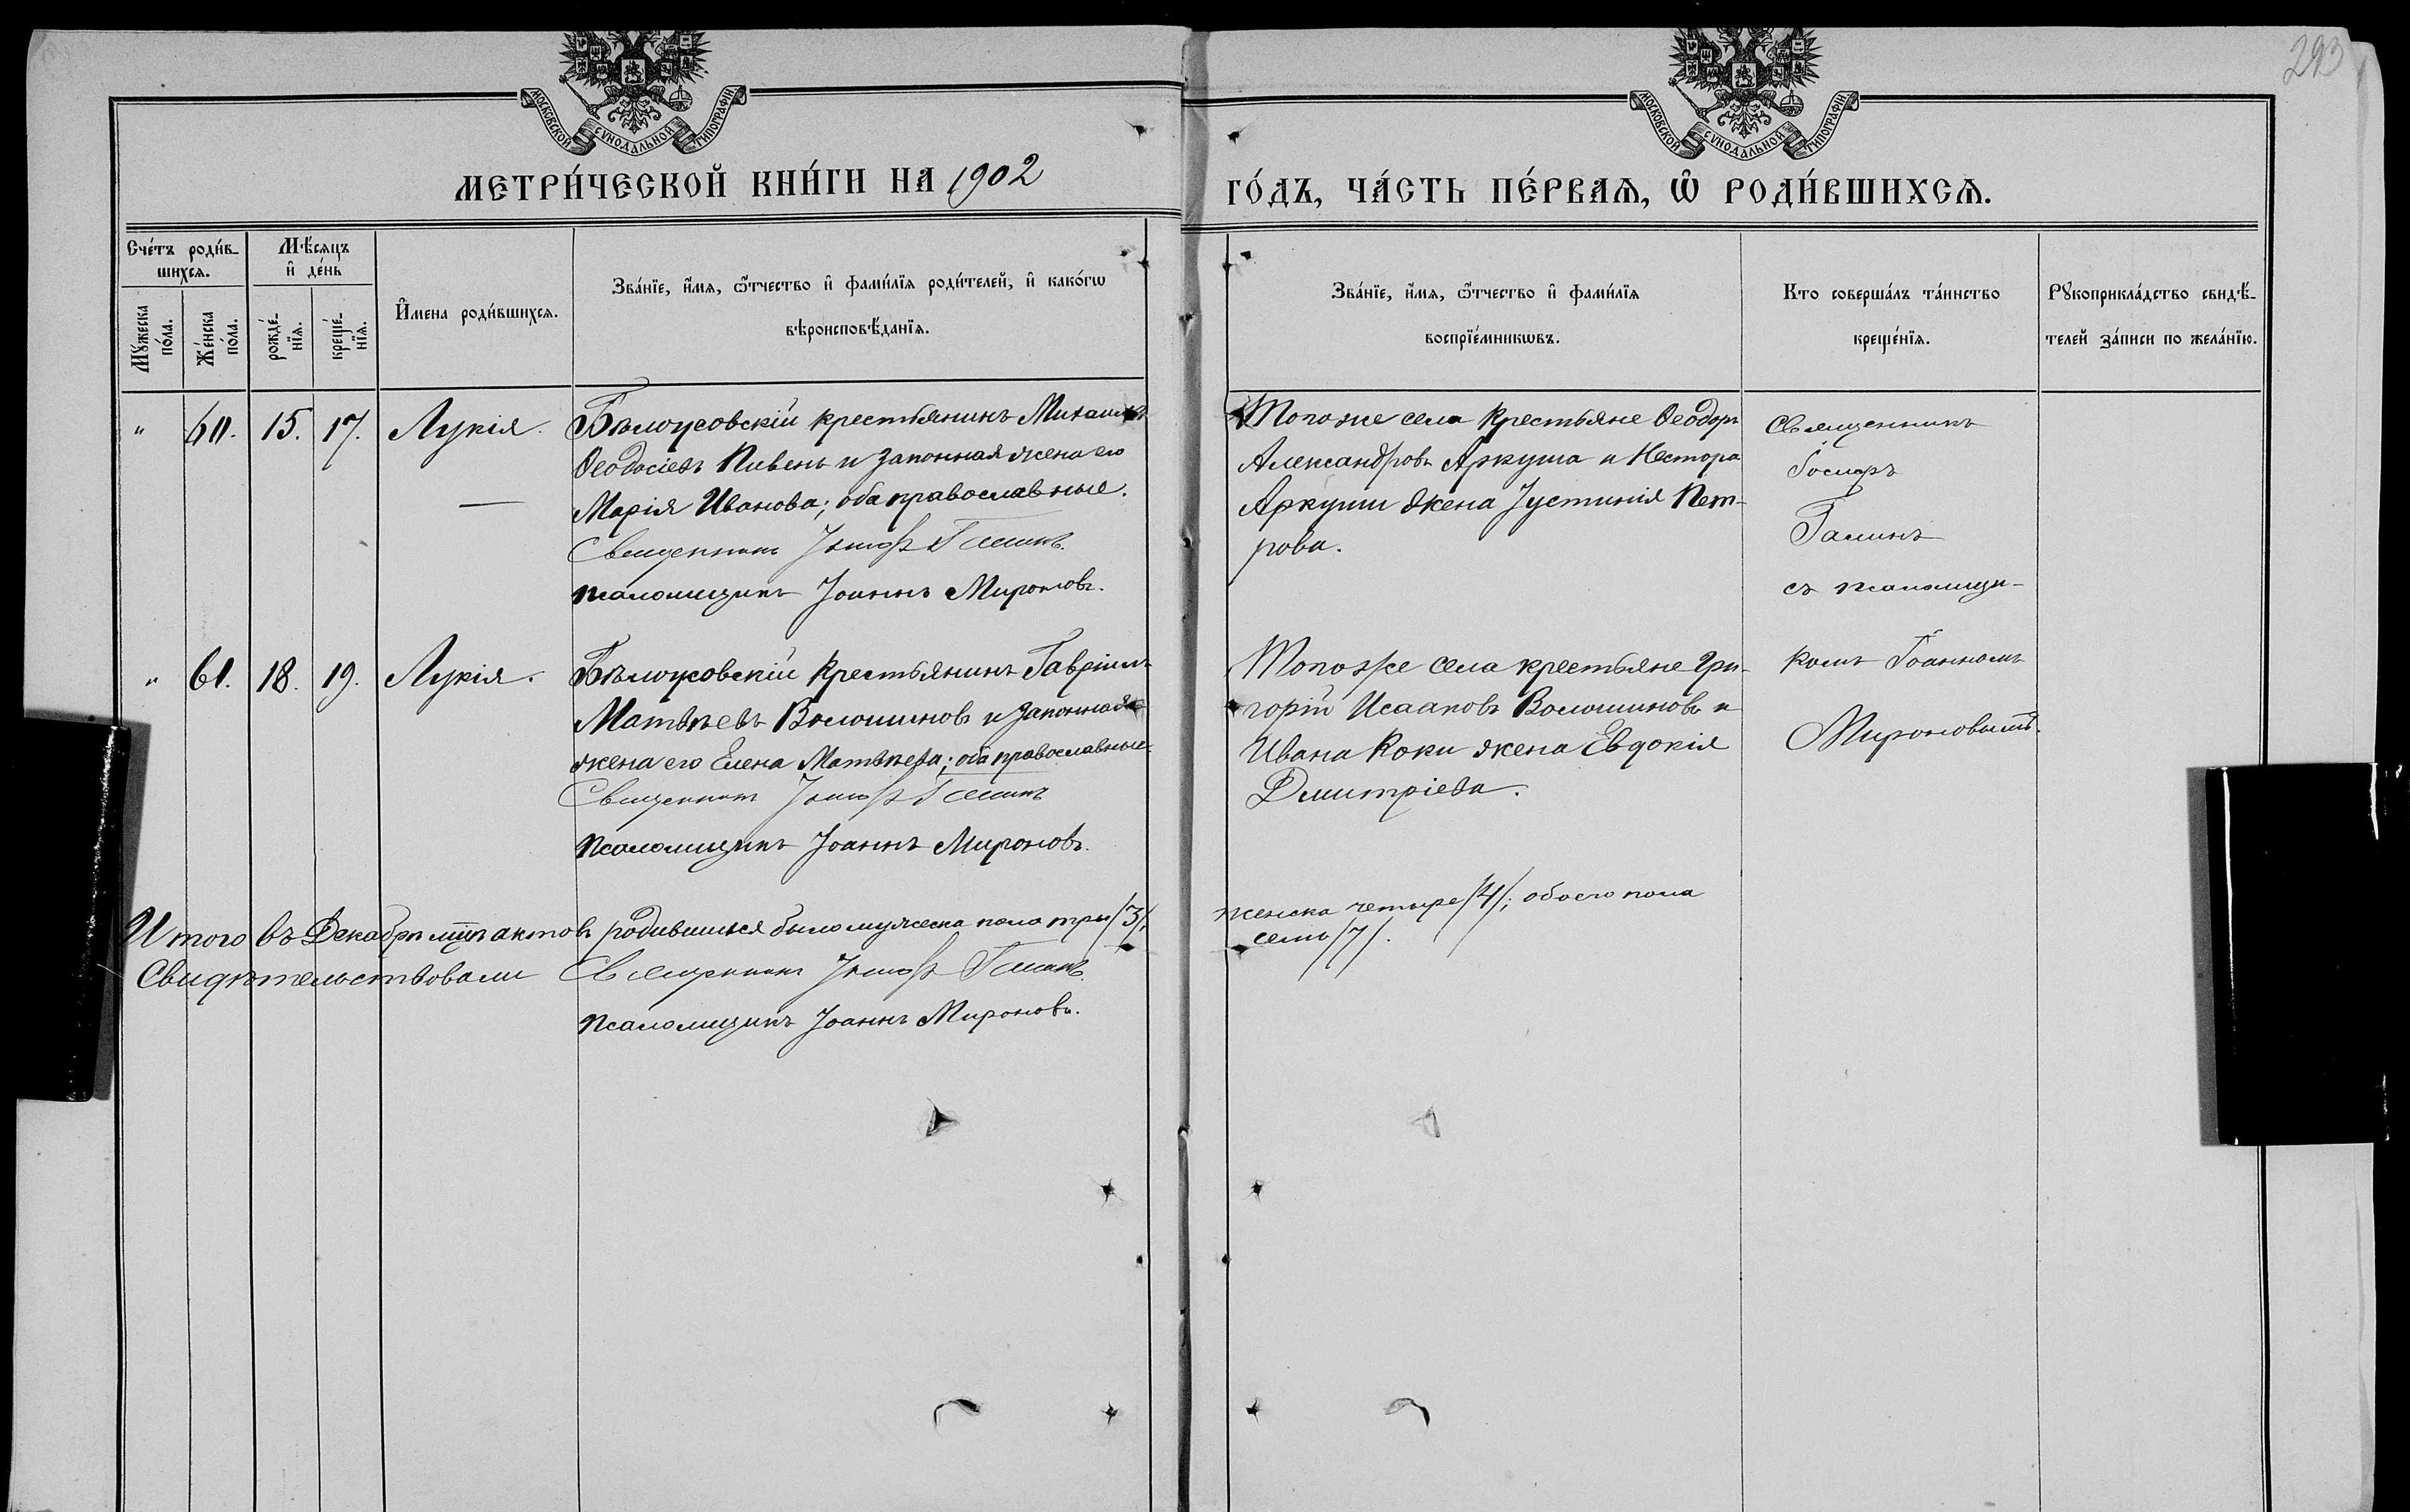 293
МОСКОВСКОЙ СѴНОДАЛЬНОЙ ТИПОГРАФІИ
МОСКОВСКОЙ СѴНОДАЛЬНОЙ ТИПОГРАФІИ
МЕТРИ́ЧЕСКОЙ КНИ́ГИ НА 1902
ГО́ДЪ, ЧА́СТЬ ПЕ́РВАѦ, Ѡ҆ РОДИ́ВШИХСѦ.
Сче́тъ роди́в-
шихсѧ.
Мꙋ́жеска
по́ла.
Же́нска
по́ла.
Мѣ́сѧцъ
и҆ де́нь
рожде́-
нїѧ.
креще́-
нїѧ.
И҆́мена роди́вшихсѧ.
Зва́нїе, и҆́мѧ, ѻ҆́тчество и҆ фами́лїѧ роди́телей, и҆ како́гѡ
вѣроисповѣ́данїѧ.
Зва́нїе, и҆́мѧ, ѻ҆́тчество и҆ фами́лїѧ
воспрїе́мникѡвъ.
Кто соверша́лъ та́инство
креще́нїѧ.
Рꙋкоприкла́дство свидѣ́-
телей за́писи по жела́нїю.
" 60. 15. 17. Лукія.
Бѣлоусовскій крестьянинъ Михаилъ
Ѳеодосіевъ Пивень и законная жена его
Марія Иванова; оба православные.
Священникъ Іосифъ Галинъ.
псаломщикъ Іоаннъ Мироновъ.
Того же села крестьяне Ѳеодоръ
Александровъ Аркуша и Нестора
Аркуши жена Іустинія Пет-
рова.
Священникъ
Іосифъ
Галинъ
съ псаломщи-
" 61. 18. 19. Лукія.
Бѣлоусовскій крестьянинъ Гавріилъ
Матѳѣевъ Волошиновъ и законная
жена его Елена Матѳѣева; оба православные.
Священникъ Іосифъ Галинъ
псаломщикъ Іоаннъ Мироновъ.
Того же села крестьяне Гри-
горій Исааковъ Волошиновъ и
Ивана Коки жена Евдокія
Дмитріева.
комъ Іоанномъ
Мироновымъ.
Итого въ Декабрѣ мцѣ актовъ родившихся было мужеска пола три /3/,
женска четыре /4/; обоего пола
семь /7/.
Свидѣтельствовали Священникъ Іосифъ Галинъ.
псаломщикъ Іоаннъ Мироновъ.